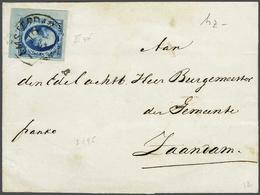 AMSTERDAM
Aan
den Edelachtb Heer Burgemeester
der Gemeente
franko
Zaandam.